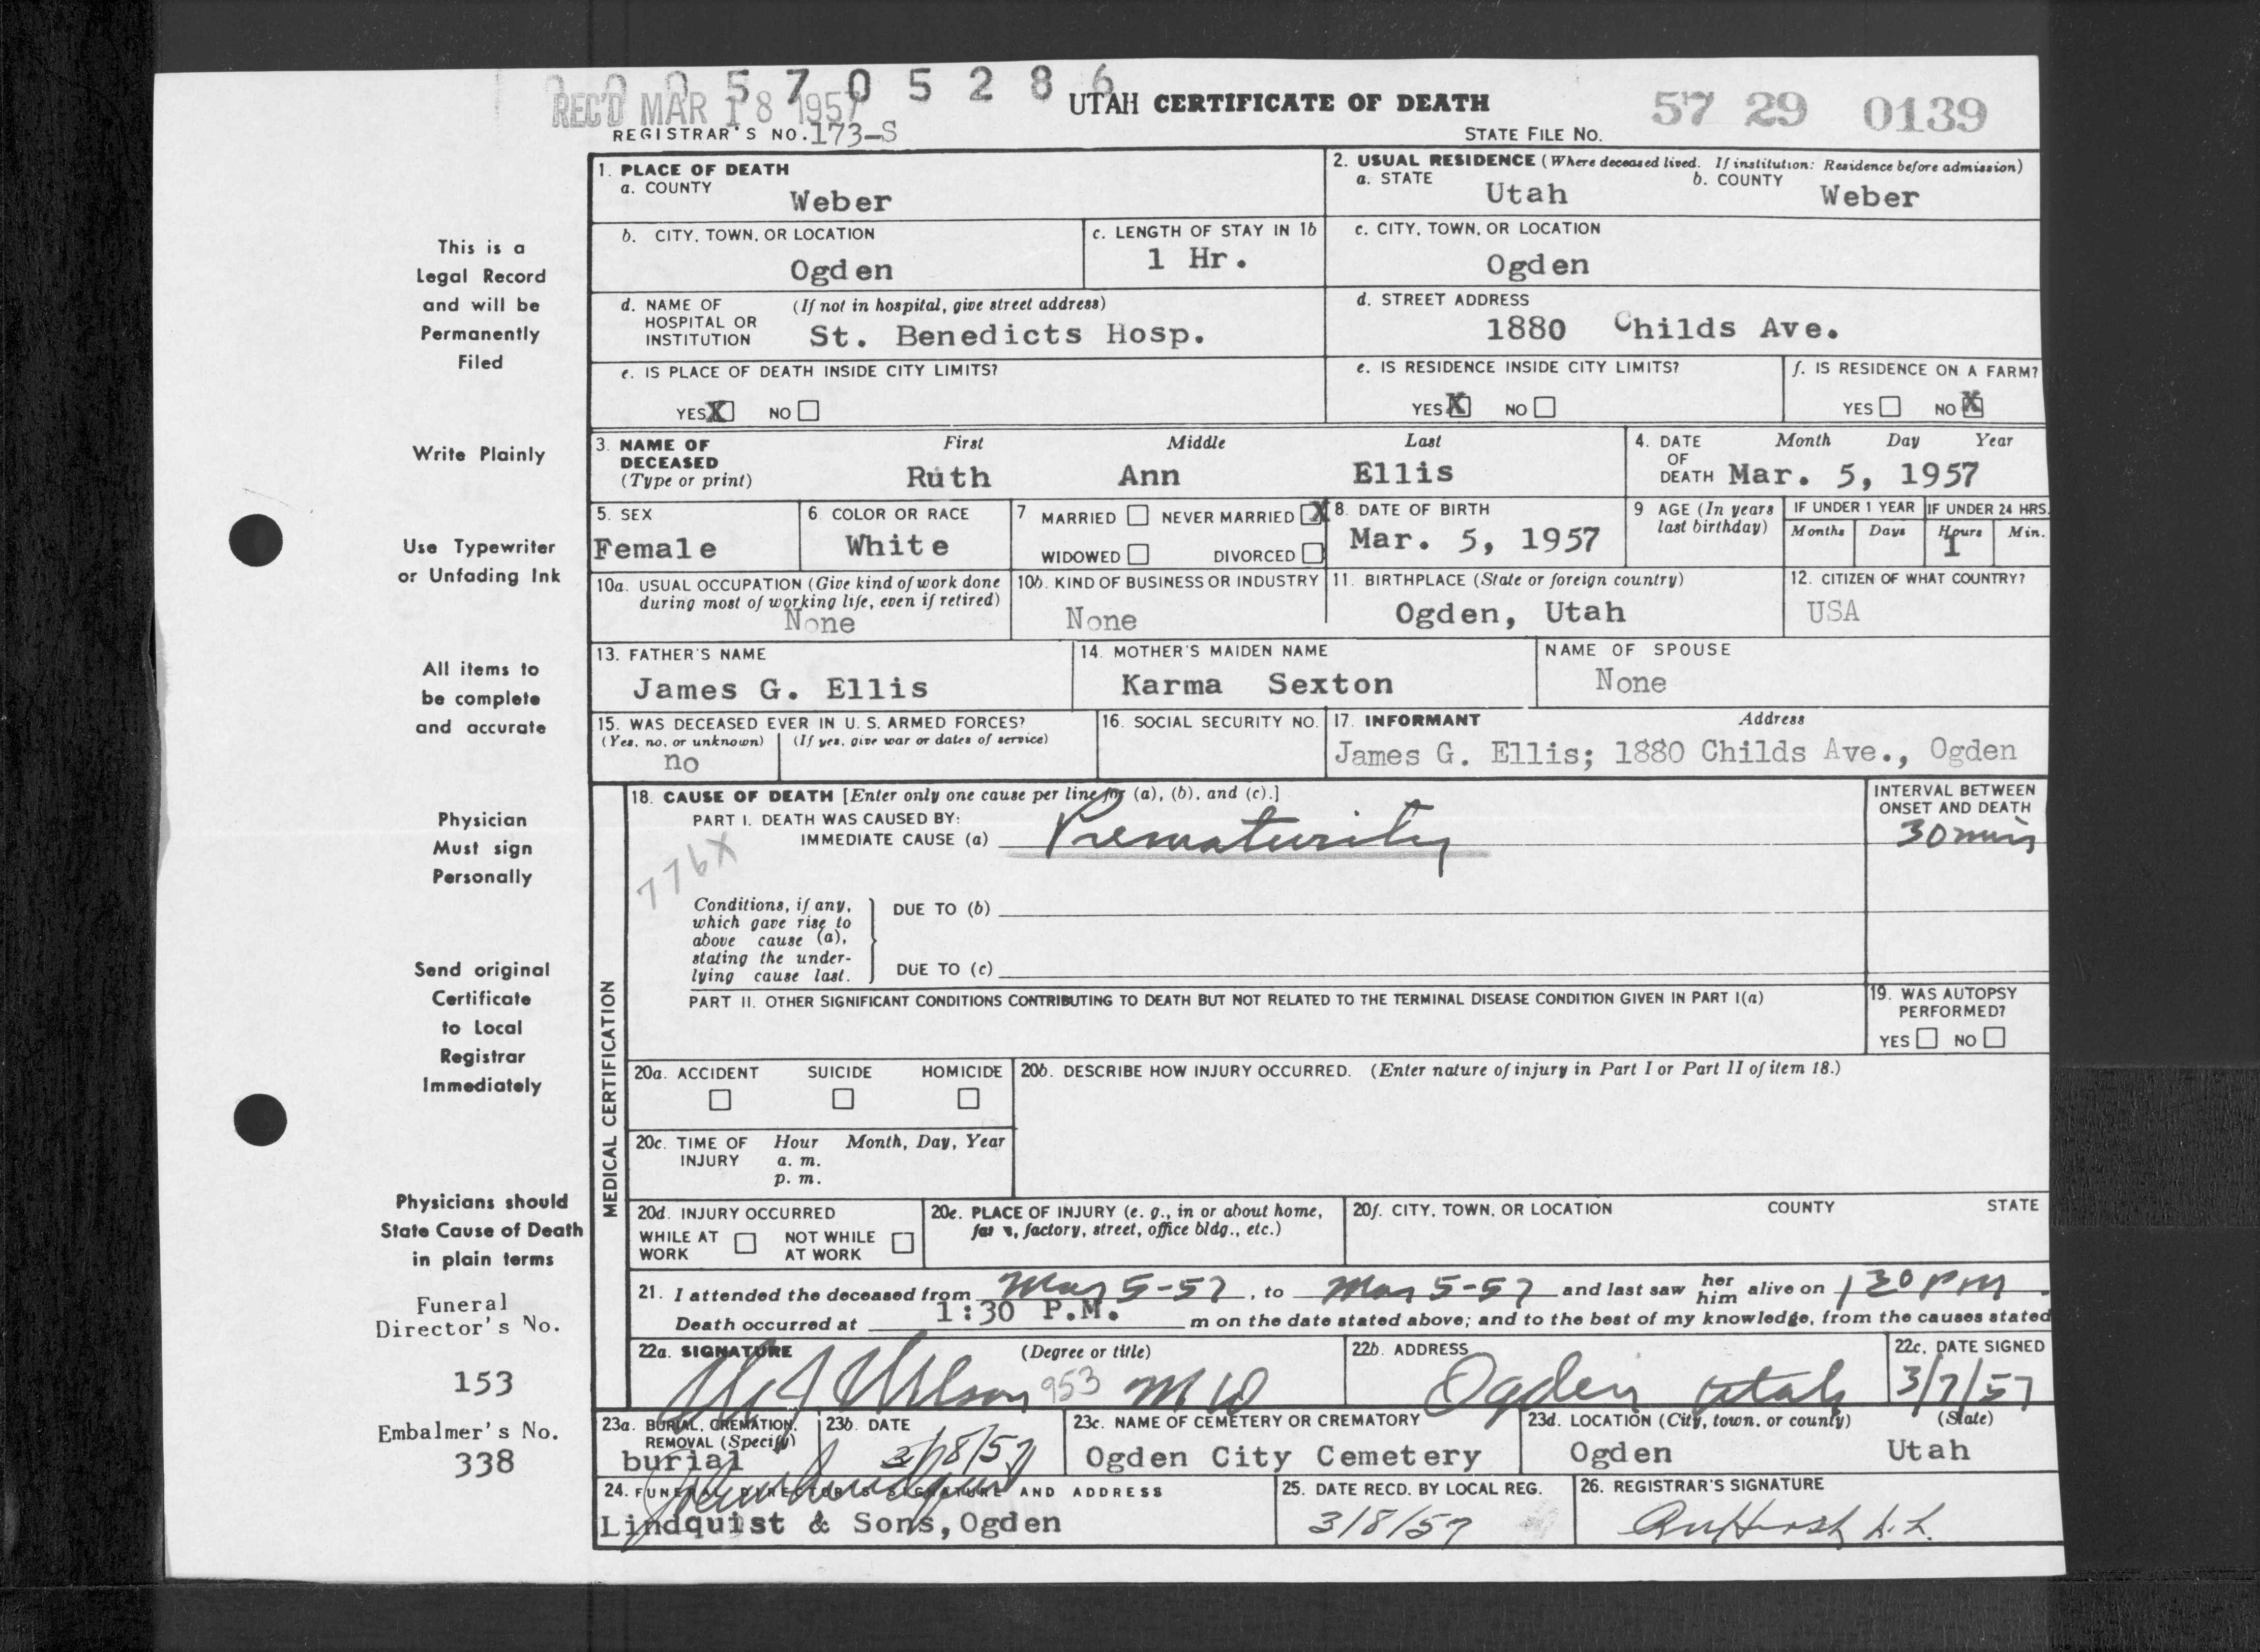 0 0 0 5 7 0 5 2 8 6
REC'D MAR 18 1957
UTAH CERTIFICATE OF DEATH
57 29 0139
REGISTRAR'S NO. 173-S
STATE FILE NO.
1. PLACE OF DEATH
a. COUNTY
Weber
2. USUAL RESIDENCE (Where deceased lived. If institution: Residence before admission)
a. STATE
Utah
b. COUNTY
Weber
b. CITY, TOWN, OR LOCATION
Ogden
c. LENGTH OF STAY IN 1b
1 Hr.
c. CITY, TOWN, OR LOCATION
Ogden
d. NAME OF HOSPITAL OR INSTITUTION
(If not in hospital, give street address)
St. Benedicts Hosp.
d. STREET ADDRESS
1880 Childs Ave.
e. IS PLACE OF DEATH INSIDE CITY LIMITS?
YES X NO
e. IS RESIDENCE INSIDE CITY LIMITS?
YES X NO
f. IS RESIDENCE ON A FARM?
YES NO X
3. NAME OF DECEASED
(Type or print)
First Middle Last
Ruth Ann Ellis
4. DATE OF DEATH
Month Day Year
Mar. 5, 1957
5. SEX
Female
6. COLOR OR RACE
White
7 MARRIED NEVER MARRIED X
WIDOWED DIVORCED
8. DATE OF BIRTH
Mar. 5, 1957
9 AGE (In years last birthday)
IF UNDER 1 YEAR
Months Days
IF UNDER 24 HRS.
Hours Min.
1
10a. USUAL OCCUPATION (Give kind of work done during most of working life, even if retired)
None
10b. KIND OF BUSINESS OR INDUSTRY
None
11. BIRTHPLACE (State or foreign country)
Ogden, Utah
12. CITIZEN OF WHAT COUNTRY?
USA
13. FATHER'S NAME
James G. Ellis
14. MOTHER'S MAIDEN NAME
Karma Sexton
NAME OF SPOUSE
None
15. WAS DECEASED EVER IN U. S. ARMED FORCES?
(Yes, no, or unknown) (If yes, give war or dates of service)
no
16. SOCIAL SECURITY NO.
17. INFORMANT Address
James G. Ellis; 1880 Childs Ave., Ogden
MEDICAL CERTIFICATION
18. CAUSE OF DEATH [Enter only one cause per line for (a), (b), and (c).]
PART I. DEATH WAS CAUSED BY:
IMMEDIATE CAUSE (a) Prematurity
776X
INTERVAL BETWEEN ONSET AND DEATH
30 min
Conditions, if any, which gave rise to above cause (a), stating the underlying cause last.
DUE TO (b)
DUE TO (c)
PART II. OTHER SIGNIFICANT CONDITIONS CONTRIBUTING TO DEATH BUT NOT RELATED TO THE TERMINAL DISEASE CONDITION GIVEN IN PART I(a)
19. WAS AUTOPSY PERFORMED?
YES NO
20a. ACCIDENT SUICIDE HOMICIDE
20b. DESCRIBE HOW INJURY OCCURRED. (Enter nature of injury in Part I or Part II of item 18.)
20c. TIME OF INJURY
Hour Month, Day, Year
a. m.
p. m.
20d. INJURY OCCURRED
WHILE AT WORK NOT WHILE AT WORK
20e. PLACE OF INJURY (e. g., in or about home, farm, factory, street, office bldg., etc.)
20f. CITY, TOWN, OR LOCATION COUNTY STATE
21. I attended the deceased from Mar 5-57, to Mar 5-57 and last saw her him alive on 130 PM.
Death occurred at 1:30 P.M. m on the date stated above; and to the best of my knowledge, from the causes stated
22a. SIGNATURE (Degree or title)
Wilson 953 MD
22b. ADDRESS
Ogden Utah
22c. DATE SIGNED
3/7/57
23a. BURIAL, CREMATION, REMOVAL (Specify)
burial
23b. DATE
3/8/57
23c. NAME OF CEMETERY OR CREMATORY
Ogden City Cemetery
23d. LOCATION (City, town, or county) (State)
Ogden Utah
24. FUNERAL DIRECTOR'S SIGNATURE AND ADDRESS
Lindquist & Sons, Ogden
25. DATE RECD. BY LOCAL REG.
3/8/57
26. REGISTRAR'S SIGNATURE
This is a
Legal Record
and will be
Permanently
Filed
Write Plainly
Use Typewriter
or Unfading Ink
All items to
be complete
and accurate
Physician
Must sign
Personally
Send original
Certificate
to Local
Registrar
Immediately
Physicians should
State Cause of Death
in plain terms
Funeral
Director's No.
153
Embalmer's No.
338